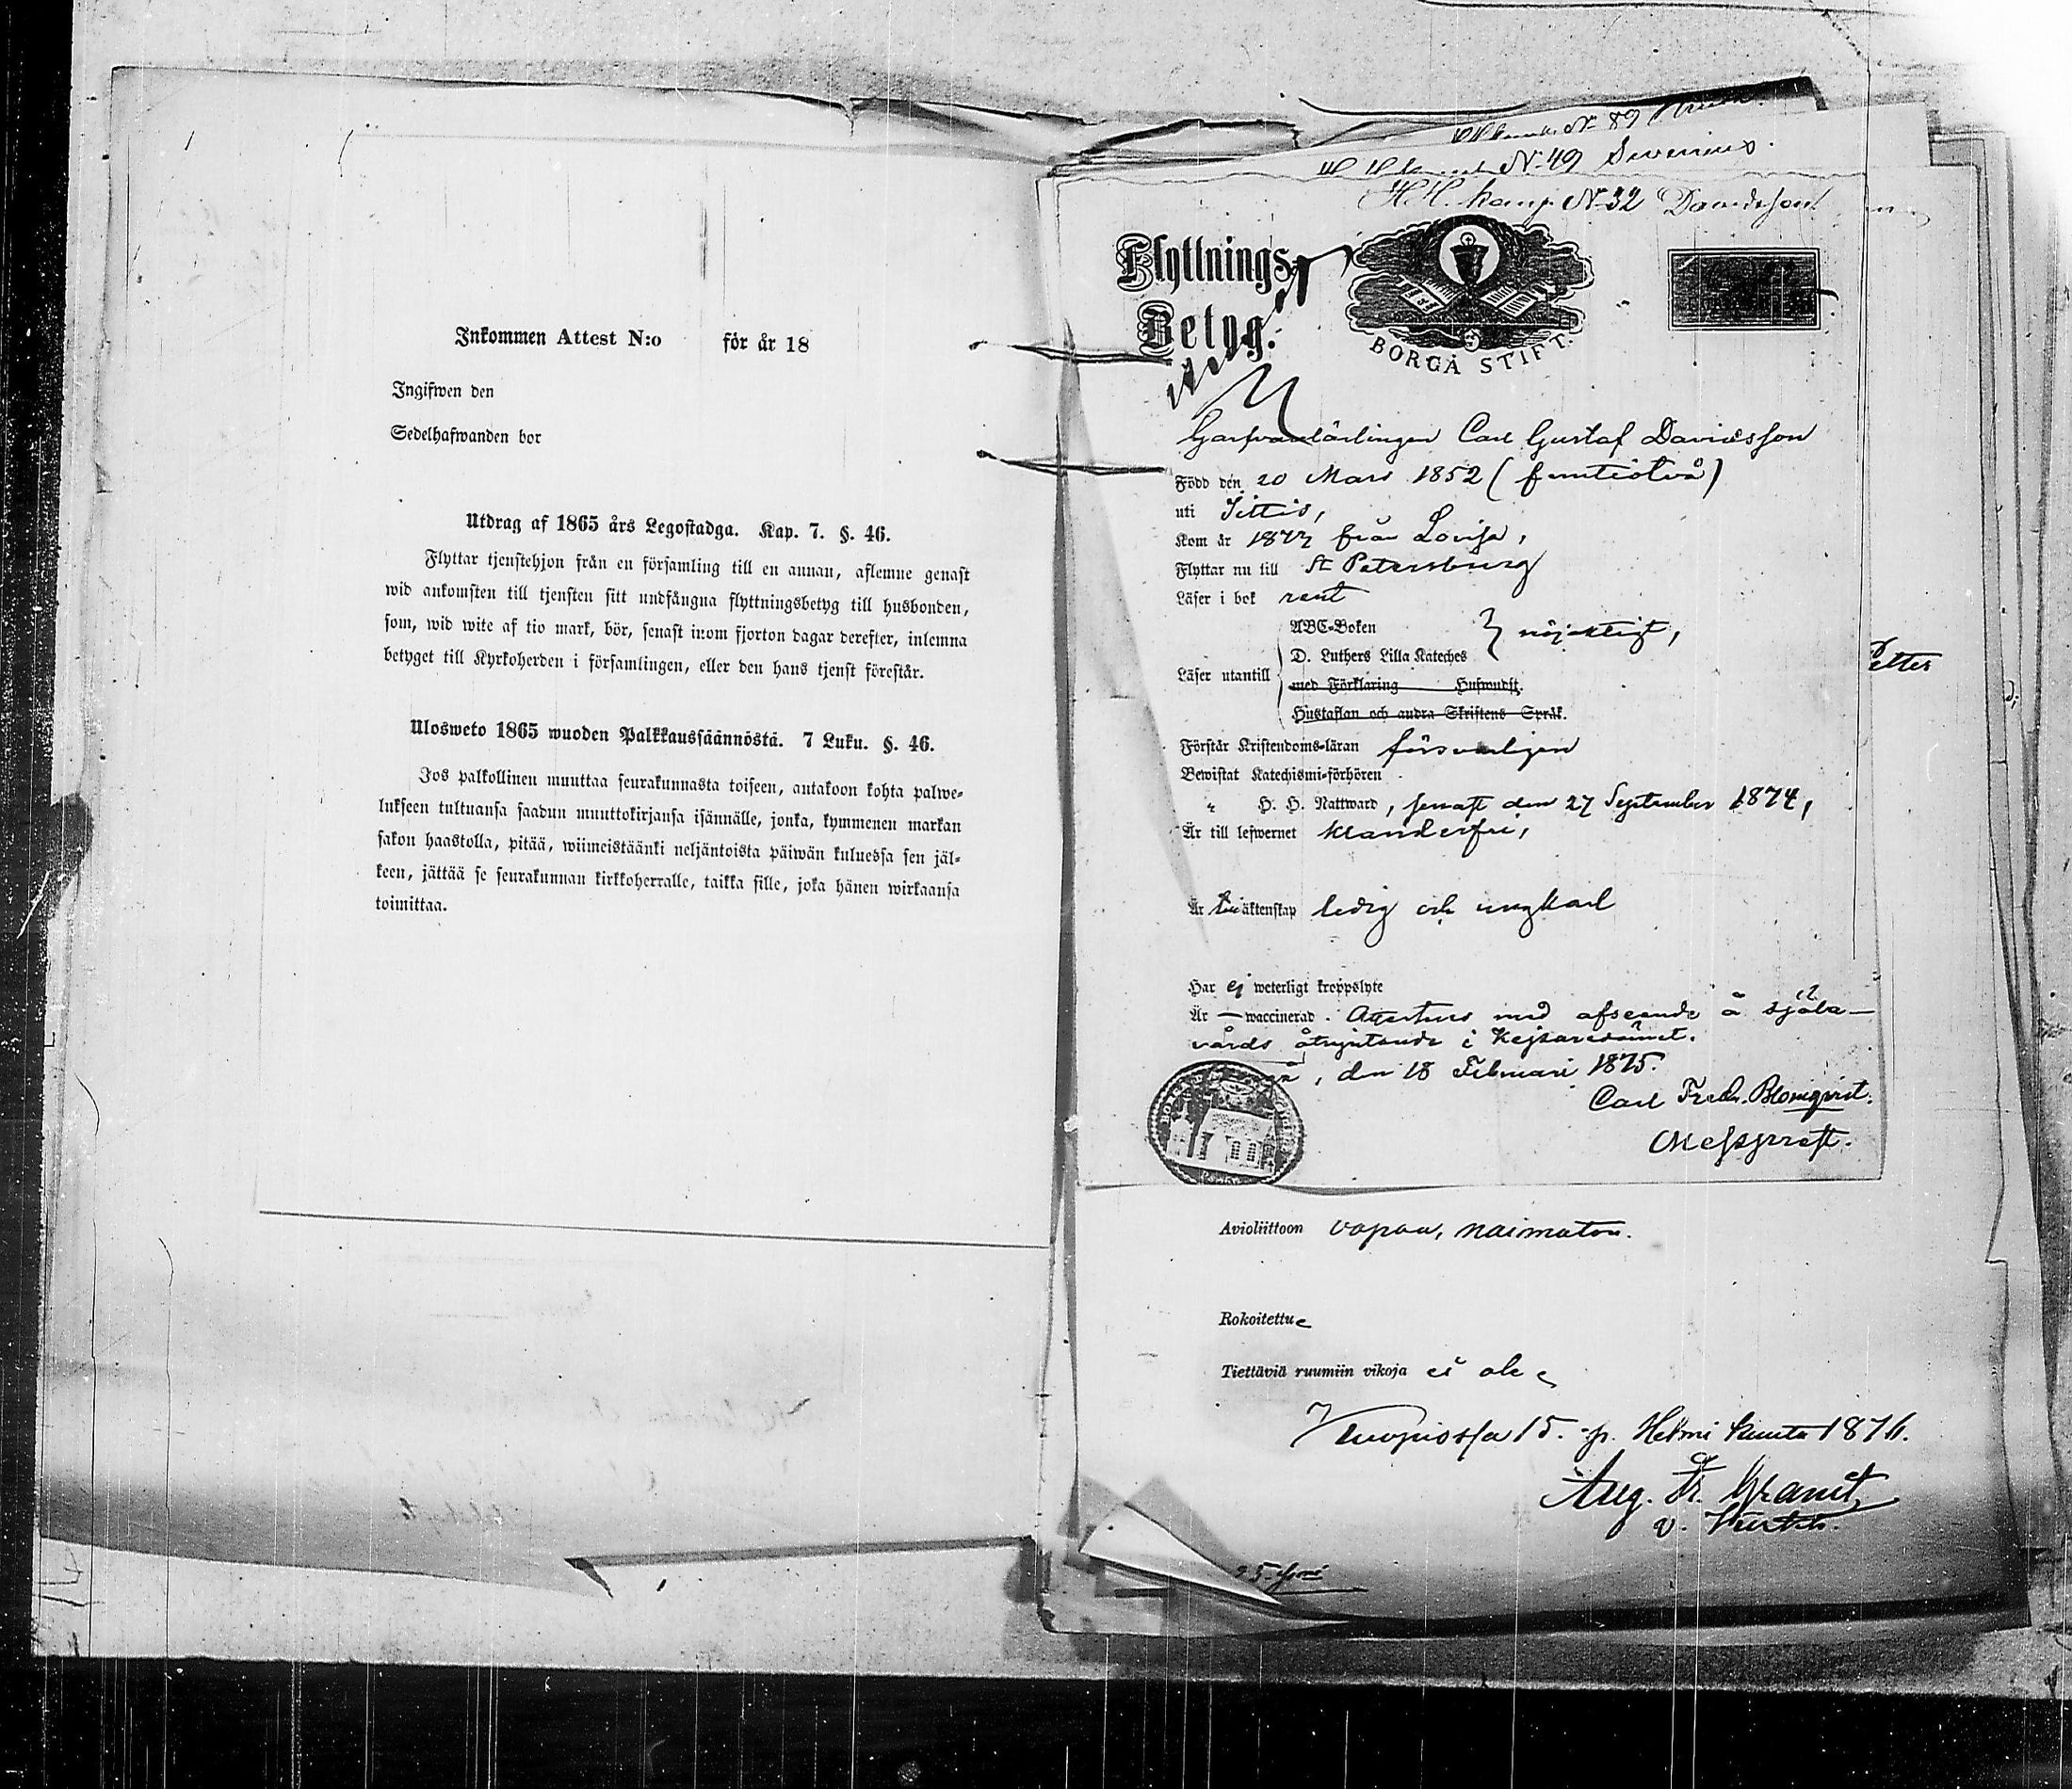 Inkommen Attest N:o för år 18
Ingifwen den
Sedelhafwanden bor
Utdrag af 1865 års Legostadga. Kap. 7. §. 46.
Flyttar tjenstehjon från en församling till en annan, aflemne genast
wid ankomsten till tjensten sitt undfångna flyttningsbetyg till husbonden,
som, wid wite af tio mark, bör, senast inom fjorton dagar derefter, inlemna
betyget till Kyrkoherden i församlingen, eller den hans tjenst förestår.
Ulosweto 1865 wuoden Palkkaussäännöstä. 7 Luku. §. 46.
Jos palkollinen muuttaa seurakunnasta toiseen, antakoon kohta palwe-
lukseen tultuansa saadun muuttokirjansa isännälle, jonka, kymmenen markan
sakon haastolla, pitää, wiimeistäänki neljäntoista päiwän kuluessa sen jäl-
keen, jättää se seurakunnan kirkkoherralle, taikka sille, joka hänen wirkaansa
toimittaa.
N 89
N 49 Severinus.
H.H. kamp N 32 Davidsson
Flyttnings-
Betyg.
BORGÅ STIFT.
Garfvarlärlingen Carl Gustaf Davidsson
Född den 20 Mars 1852 (femtiotvå)
uti Jittis,
Kom år 1872 från Lovisa,
Flyttar nu till St Petersburg
Läser i bok rent
ABC-Boken
D. Luthers Lilla Kateches nöjaktigt,
Läser utantill
med Förklaring Hufwudst.
Hustaflan och andra Skriftens Språk.
Förstår Kristendoms-läran försvarligen
Bewistat Katechismi-förhören
" H. H. Nattward, senast den 27 September 1874,
Är till lefwernet klanderfri,
Är till äktenskap ledig och ungkarl
Har ej weterligt kroppslyte
Är — waccinerad. Attesteras med afseende å själa-
vårds åtnjutande i Kejsaredömet.
den 18 Februari 1875.
Carl Fredr. Blomqvist.
Petter
Avioliittoon vapaa, naimaton.
Rokoitettu
Tiettäviä ruumiin vikoja ei ole
Kuopiossa 15. p. Helmi kuuta 1876.
Aug. Fr. Granit